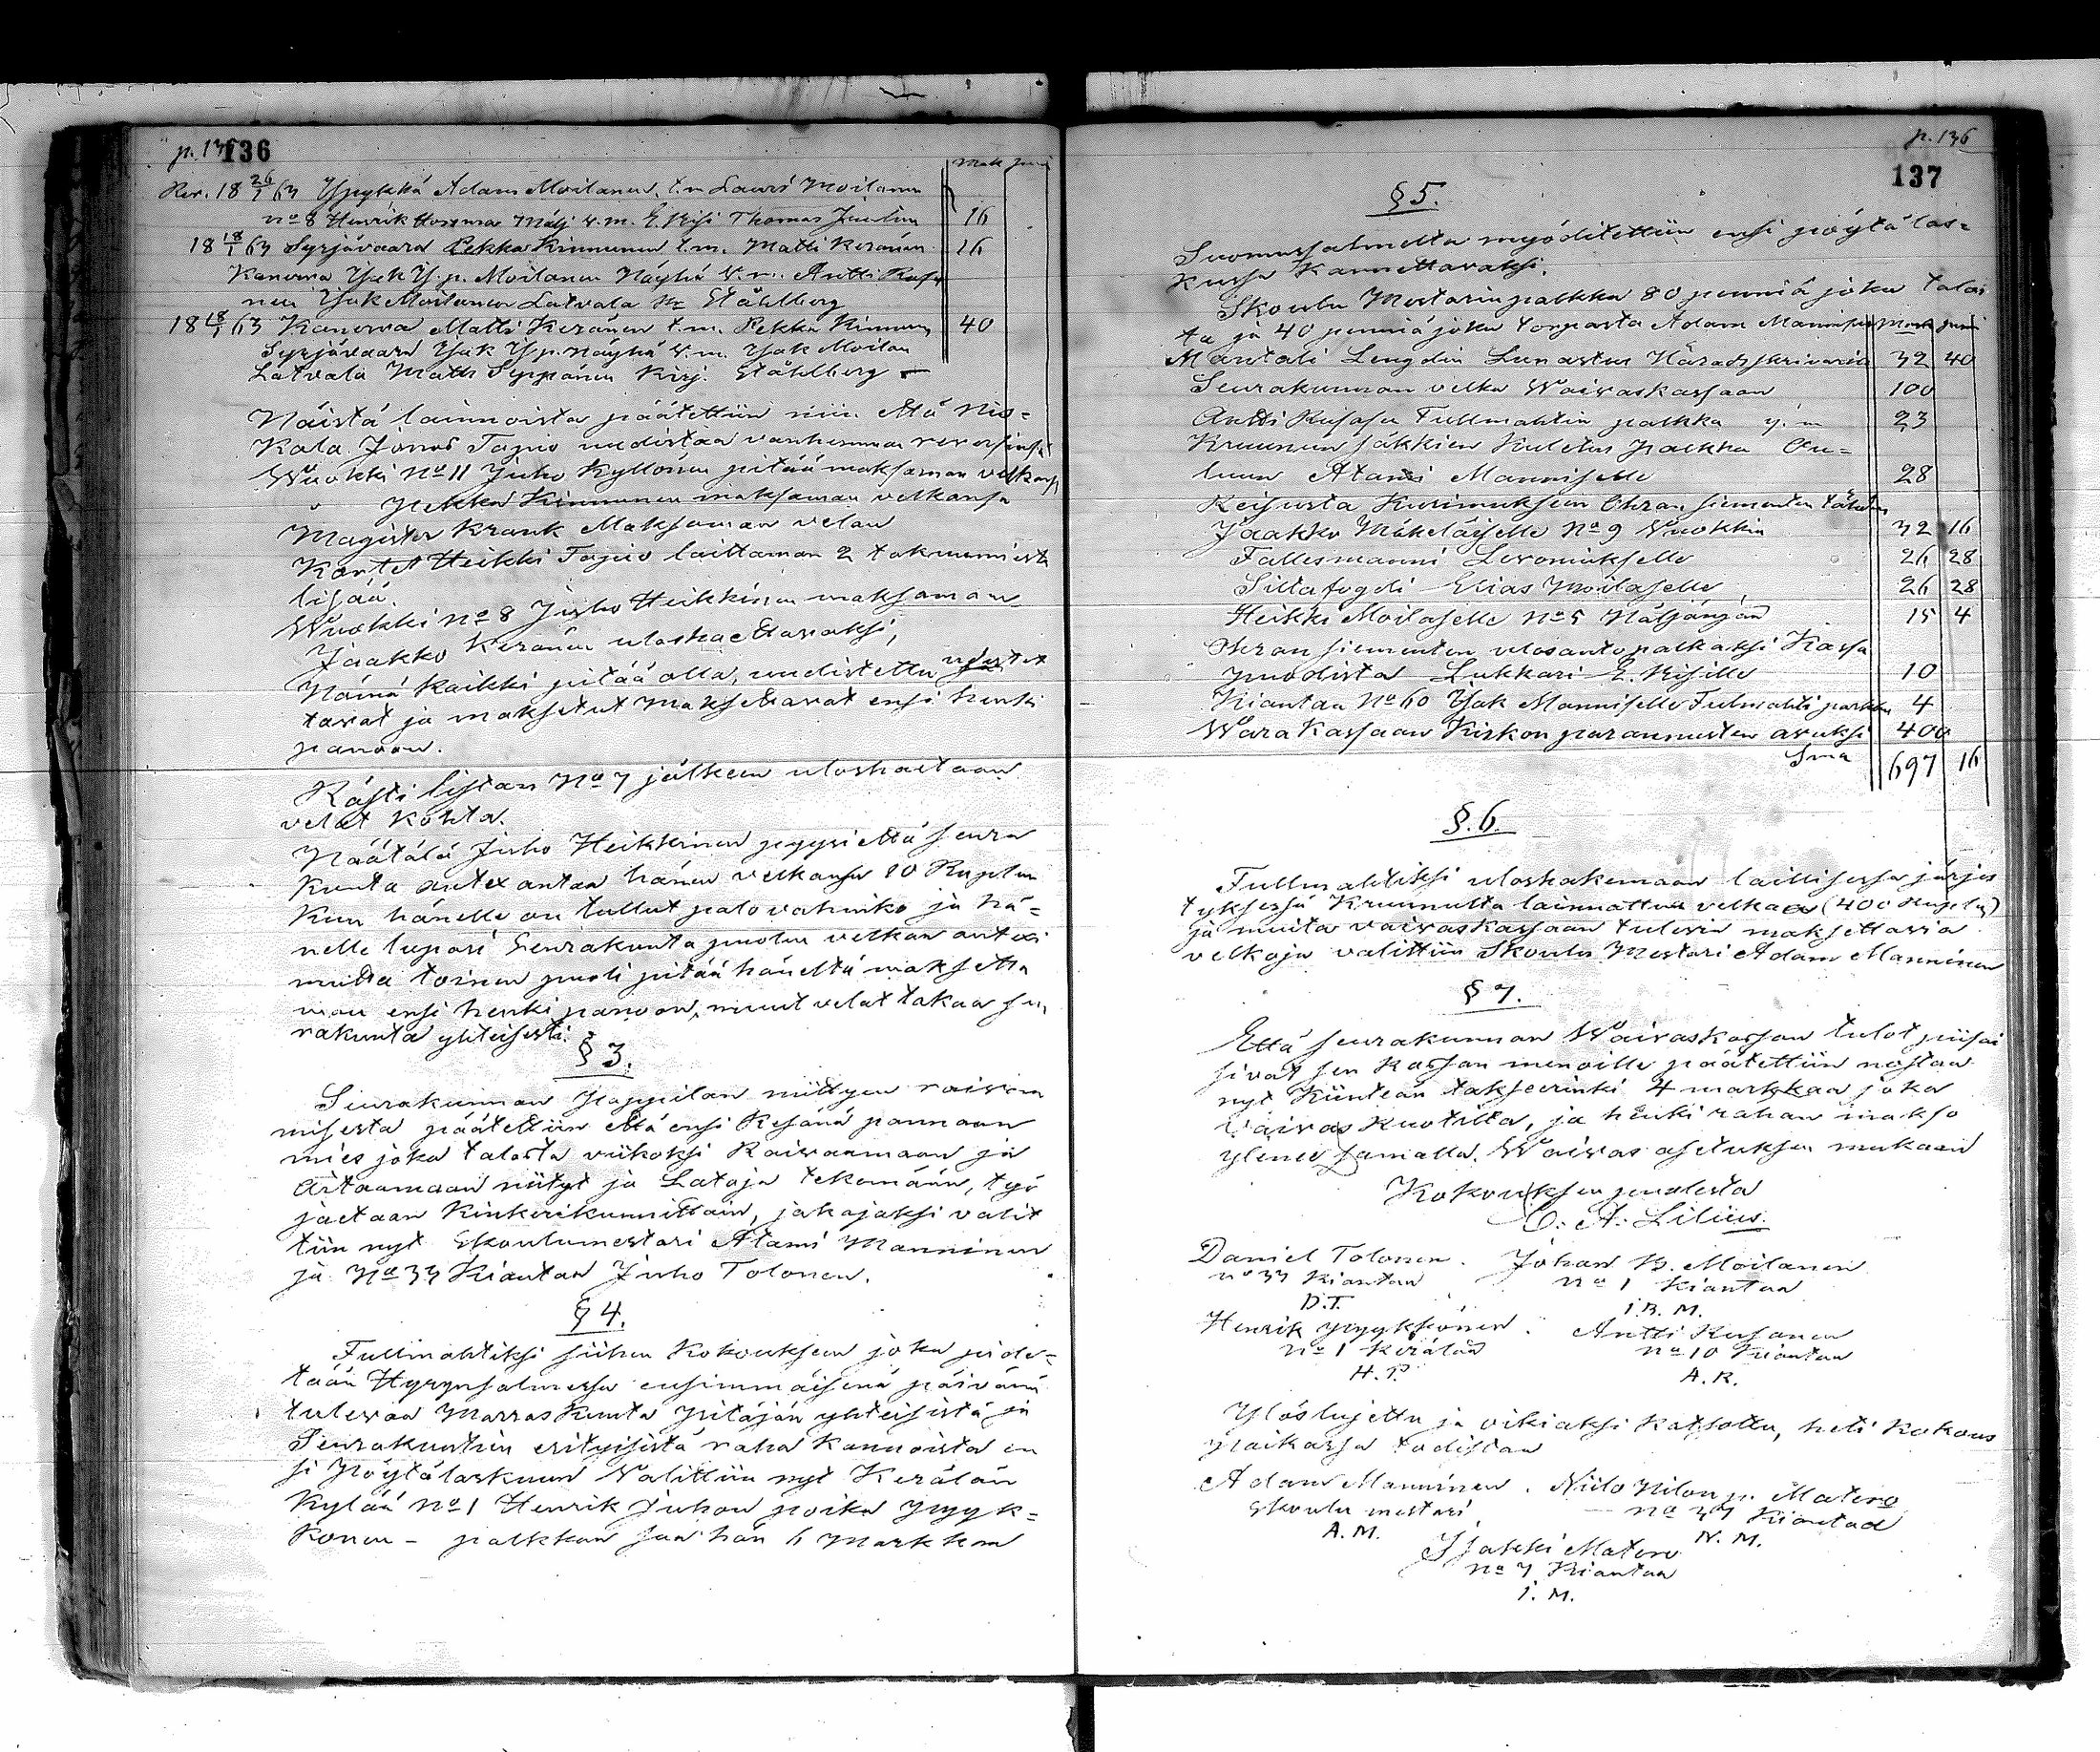 p. 136
136
mark penni
Rev. 18 26/1 63 Ypykkä Adam Moilanen, t.m Lauri Moilanen
no 8 Henrik Näljy v.m. E. Kisi Thomas Juntun 16
18 18/1 63 Syrjävaara Pekka Kinnunen t.m. Matti Keränen 16
Kanerva Isak Is.p. Moilanen Näyhä v.m. Antti Rusa
nen Isak Moilanen Latvala Ståhlberg
18 18/1 63 Kanerva Matti Keränen t.m. Pekka Kinnunen 40
Syrjävaara Isak Is p. Näyhä v.m. Isak Moilan
Latvala Matts Seppänen Kirj. Ståhlberg
Näistä lainnoista päätettiin niin että Nis=
Kala Jonas Tapio uudistaa vanhemman reversinsä
Wuokki No 11 Juho Kyllönen pitää maksaman velkansa
" Pekka Kinnunen maksaman velkansa
Magister Krank Maksaman velan
Kortet Heikki Tapio laittaman 2 takuumiestä
lisää.
Wuokki No 8 Juho Heikkinen maksaman
Jaakko Keränen uloshaettavaksi,
Nämä kaikki pitää olla, uudistettu udistet
tavat ja maksetut maksettavat ensi henki
panoon.
Rästi listan No 7 jälkeen uloshaetaan
velat kohta.
Näätälä Juho Heikkinen pyysi että seura
kunta antex antaa hänen velkansa 80 Ruplan
kun hänelle on tullut palovahinko ja hä=
nelle lupasi Seurakunta puolen velkan antexi
mutta toinen puoli pitää häneltä maksetta
man ensi henki panoon, muut velat takaa seu
rakunta yhteisesti.
§ 3.
Seurakunnan Pappilan niittyen raivaa
misesta päätettiin että ensi Kesänä pannaan
mies joka talosta viikoksi Raivaamaan ja
Aitaamaan niityt ja Latoja tekemään, työ
jaetaan Kinkerikunnittain, jakajaksi valit
tiin nyt Skoulumestari Atami Manninen
ja No 33 Kiantan Juho Tolonen.
§ 4.
Fullmahtiksi siihen Kokouksen joka pide=
tään Hyrynsalmessa ensimmäisenä päivänä
tulevaa Marraskuuta Pitäjän yhteisistä ja
Seurakuntien erityisistä raha Kannoista en
si Pöytälaskuun Valittiin nyt Kerälän
Kylää No 1 Henrik Juhon poika Pyyk=
könen – palkkan saa hän 6 Markkaa
p. 136
137
§ 5.
Suomussalmelta myöditettiin ensi pöytälas=
kussa Kannettavaksi.
Skoulu Mestarin palkka 80 penniä joka talos
ta ja 40 penniä joka torpasta Adam Manniselle mark penni
Mantali Lengdin Lunastus Häradsskrivaria 32 40
Seurakunnan velka Waivaskassaan 100
Antti Rusasen Fullmahtin palkka y.m 23
Kruunun säkkien Kuletus palkka Ou=
luun Atami Manniselle 28
Keisusta Kurimuksen Ohran siementen tähden
Jaakko Mäkeläiselle No 9 Wuokkin 32 16
Fallesmanni Leromukselle 26 28
Siltafogdi Elias Moilaselle, 26 28
Heikki Moilaselle No 5 Näljängän 15 4
Ohran siementen ulosanto palkaksi Kassa
puodista Lukkari E. Kisille 10
Kiantan No 60 Isak Manniselle Fulmahti parkka 4
Wara Kassaan Kirkon parannusten avuksi 400
Sma 697 16
§. 6.
Fullmahtiksi uloshakemaan laillisessa järjes
tyksessä Kruunulta lainnattua velkaa (400 Rupla)
ja muita vaivaskassaan tulevia maksettavia
velkoja valittiin Skoulu Mestari Adam Manninen
§ 7.
Että seurakunnan Waivaskassan tulot piisai
sivat sen Kassan menoille päätettiin nostaa
nyt Kiintean takseerinki 4 markkaa joka
Vaivas Ruotilta, ja henki rahan makso
ylenee samalla. Waivas asetuksen mukaan
Kokouksen puolesta
C. A. Lilius.
Daniel Tolonen. Johan B. Moilanen
no 33 Kiantaa no 1 Kiantaa
D.T. I. B. M.
Henrik Pyykkönen. Antti Rusanen
no 1 Kerälää no 10 Kiantaa
H. P. A. R.
Ylöslujettu ja oikiaksi katsottu, heti Kokous
paikassa todistaa
Adam Manninen. Niilo Nilon p. Matero
Skoulu mestari no 37 Kiantaa
A.M. N. M.
Isakki Matero
no 7 Kiantaa
I. M.